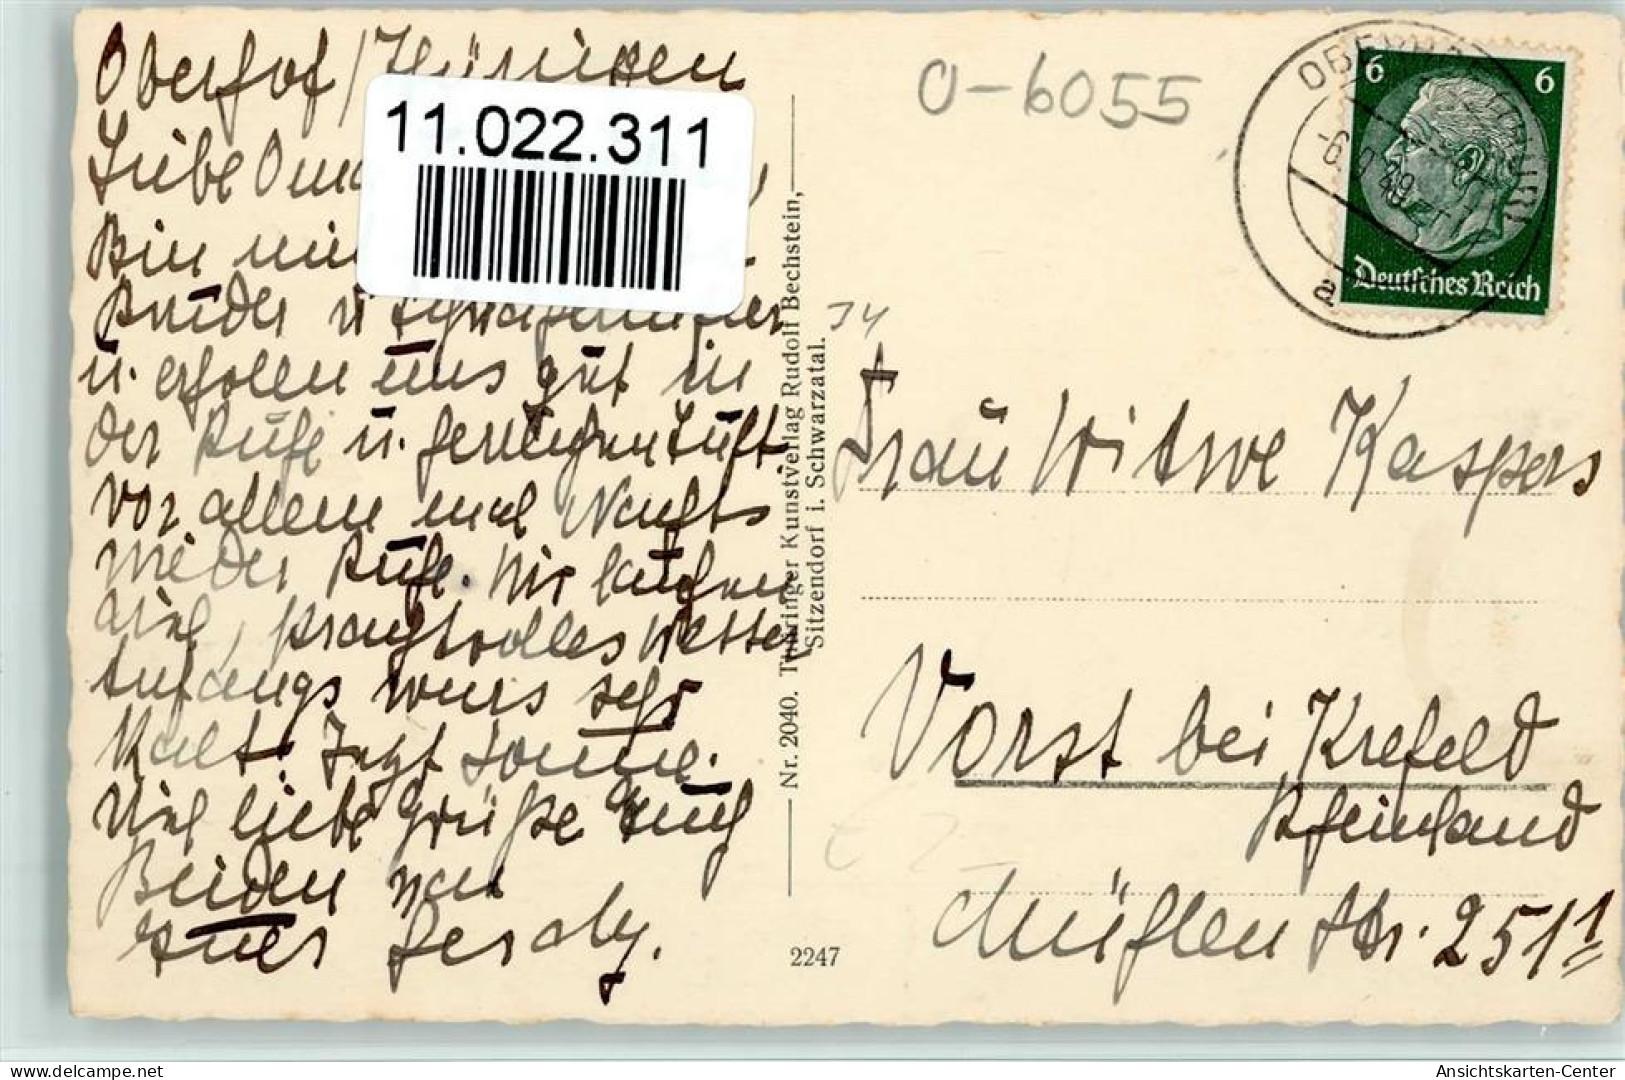 Oberhof / Thüringen
Liebe Oma
Bin mit
Bruder u Schwägerin hier
u. erholen uns gut in
der Ruhe u. herrlichen Luft
vor allem mal Nachts
wieder Ruhe. Wir laufen
viel, prachtvolles Wetter
Anfangs wars sehr
Kalt. Jetzt Sonne.
Viel liebe Grüße Euch
Beiden von
Euer Gerdy.
11.022.311
Nr. 2040. Thüringer Kunstverlag Rudolf Bechstein,
Sitzendorf i. Schwarzatal.
2247
O-6055
OBERHOF (THÜR)
a
6 6
Deutsches Reich
Frau Witwe Kaspers
Vorst bei Krefeld
Rheinland
Mühlen Str. 251
delcampe.net
Ansichtskarten-Center